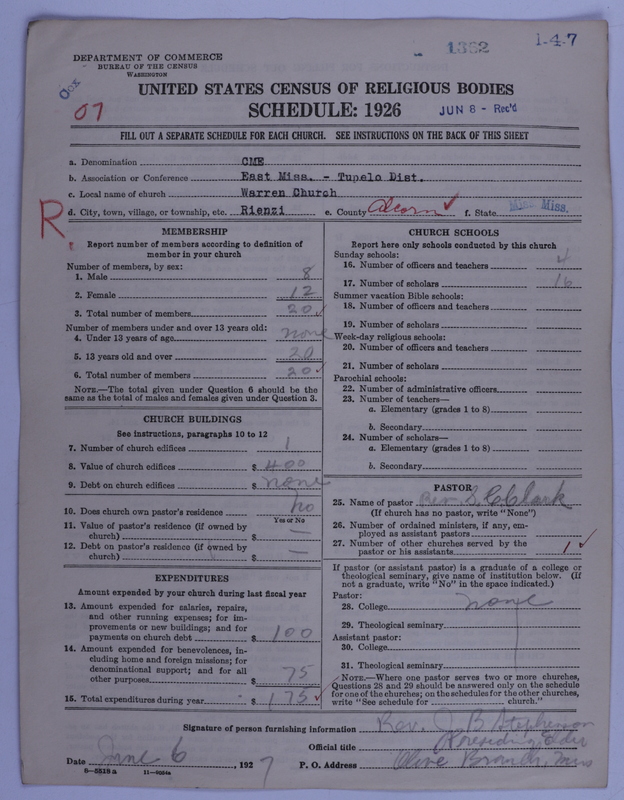 1362
1-4-7
DEPARTMENT OF COMMERCE
BUREAU OF THE CENSUS
WASHINGTON
Cox
07
UNITED STATES CENSUS OF RELIGIOUS BODIES
SCHEDULE: 1926
JUN 8 - Rec'd
FILL OUT A SEPARATE SCHEDULE FOR EACH CHURCH. SEE INSTRUCTIONS ON THE BACK OF THIS SHEET
a. Denomination CME
b. Association or Conference East Miss. - Tupelo Dist.
c. Local name of church Warren Church
R
d. City, town, village, or township, etc. Rienzi e. County Alcorn ✓ f. State Miss.
MEMBERSHIP
Report number of members according to definition of
member in your church
Number of members, by sex:
1. Male 8
2. Female 12
3. Total number of members 20 ✓
Number of members under and over 13 years old:
4. Under 13 years of age none
5. 13 years old and over 20
6. Total number of members 20 ✓
NOTE.—The total given under Question 6 should be the
same as the total of males and females given under Question 3.
CHURCH BUILDINGS
See instructions, paragraphs 10 to 12
7. Number of church edifices 1
8. Value of church edifices $ 400
9. Debt on church edifices $ none
10. Does church own pastor's residence no
Yes or No
11. Value of pastor's residence (if owned by
church) $ —
12. Debt on pastor's residence (if owned by
church) $ —
EXPENDITURES
Amount expended by your church during last fiscal year
13. Amount expended for salaries, repairs,
and other running expenses; for im-
provements or new buildings; and for
payments on church debt $ 100
14. Amount expended for benevolences, in-
cluding home and foreign missions; for
denominational support; and for all
other purposes $ 75
15. Total expenditures during year $ 175 ✓
CHURCH SCHOOLS
Report here only schools conducted by this church
Sunday schools:
16. Number of officers and teachers 4
17. Number of scholars 16
Summer vacation Bible schools:
18. Number of officers and teachers
19. Number of scholars
Week-day religious schools:
20. Number of officers and teachers
21. Number of scholars
Parochial schools:
22. Number of administrative officers
23. Number of teachers—
a. Elementary (grades 1 to 8)
b. Secondary
24. Number of scholars—
a. Elementary (grades 1 to 8)
b. Secondary
PASTOR
25. Name of pastor Rev. S. C. Clark
(If church has no pastor, write "None")
26. Number of ordained ministers, if any, em-
ployed as assistant pastors
27. Number of other churches served by the
pastor or his assistants 1 ✓
If pastor (or assistant pastor) is a graduate of a college or
theological seminary, give name of institution below. (If
not a graduate, write "No" in the space indicated.)
Pastor:
28. College none
29. Theological seminary
Assistant pastor:
30. College
31. Theological seminary
NOTE.—Where one pastor serves two or more churches,
Questions 28 and 29 should be answered only on the schedule
for one of the churches; on the schedules for the other churches,
write "See schedule for church."
Signature of person furnishing information Rev. J. B. Stephenson
Official title Presiding Elder
Date June 6, 1927 P. O. Address Olive Branch, Miss
8—5519 a 11—9064a